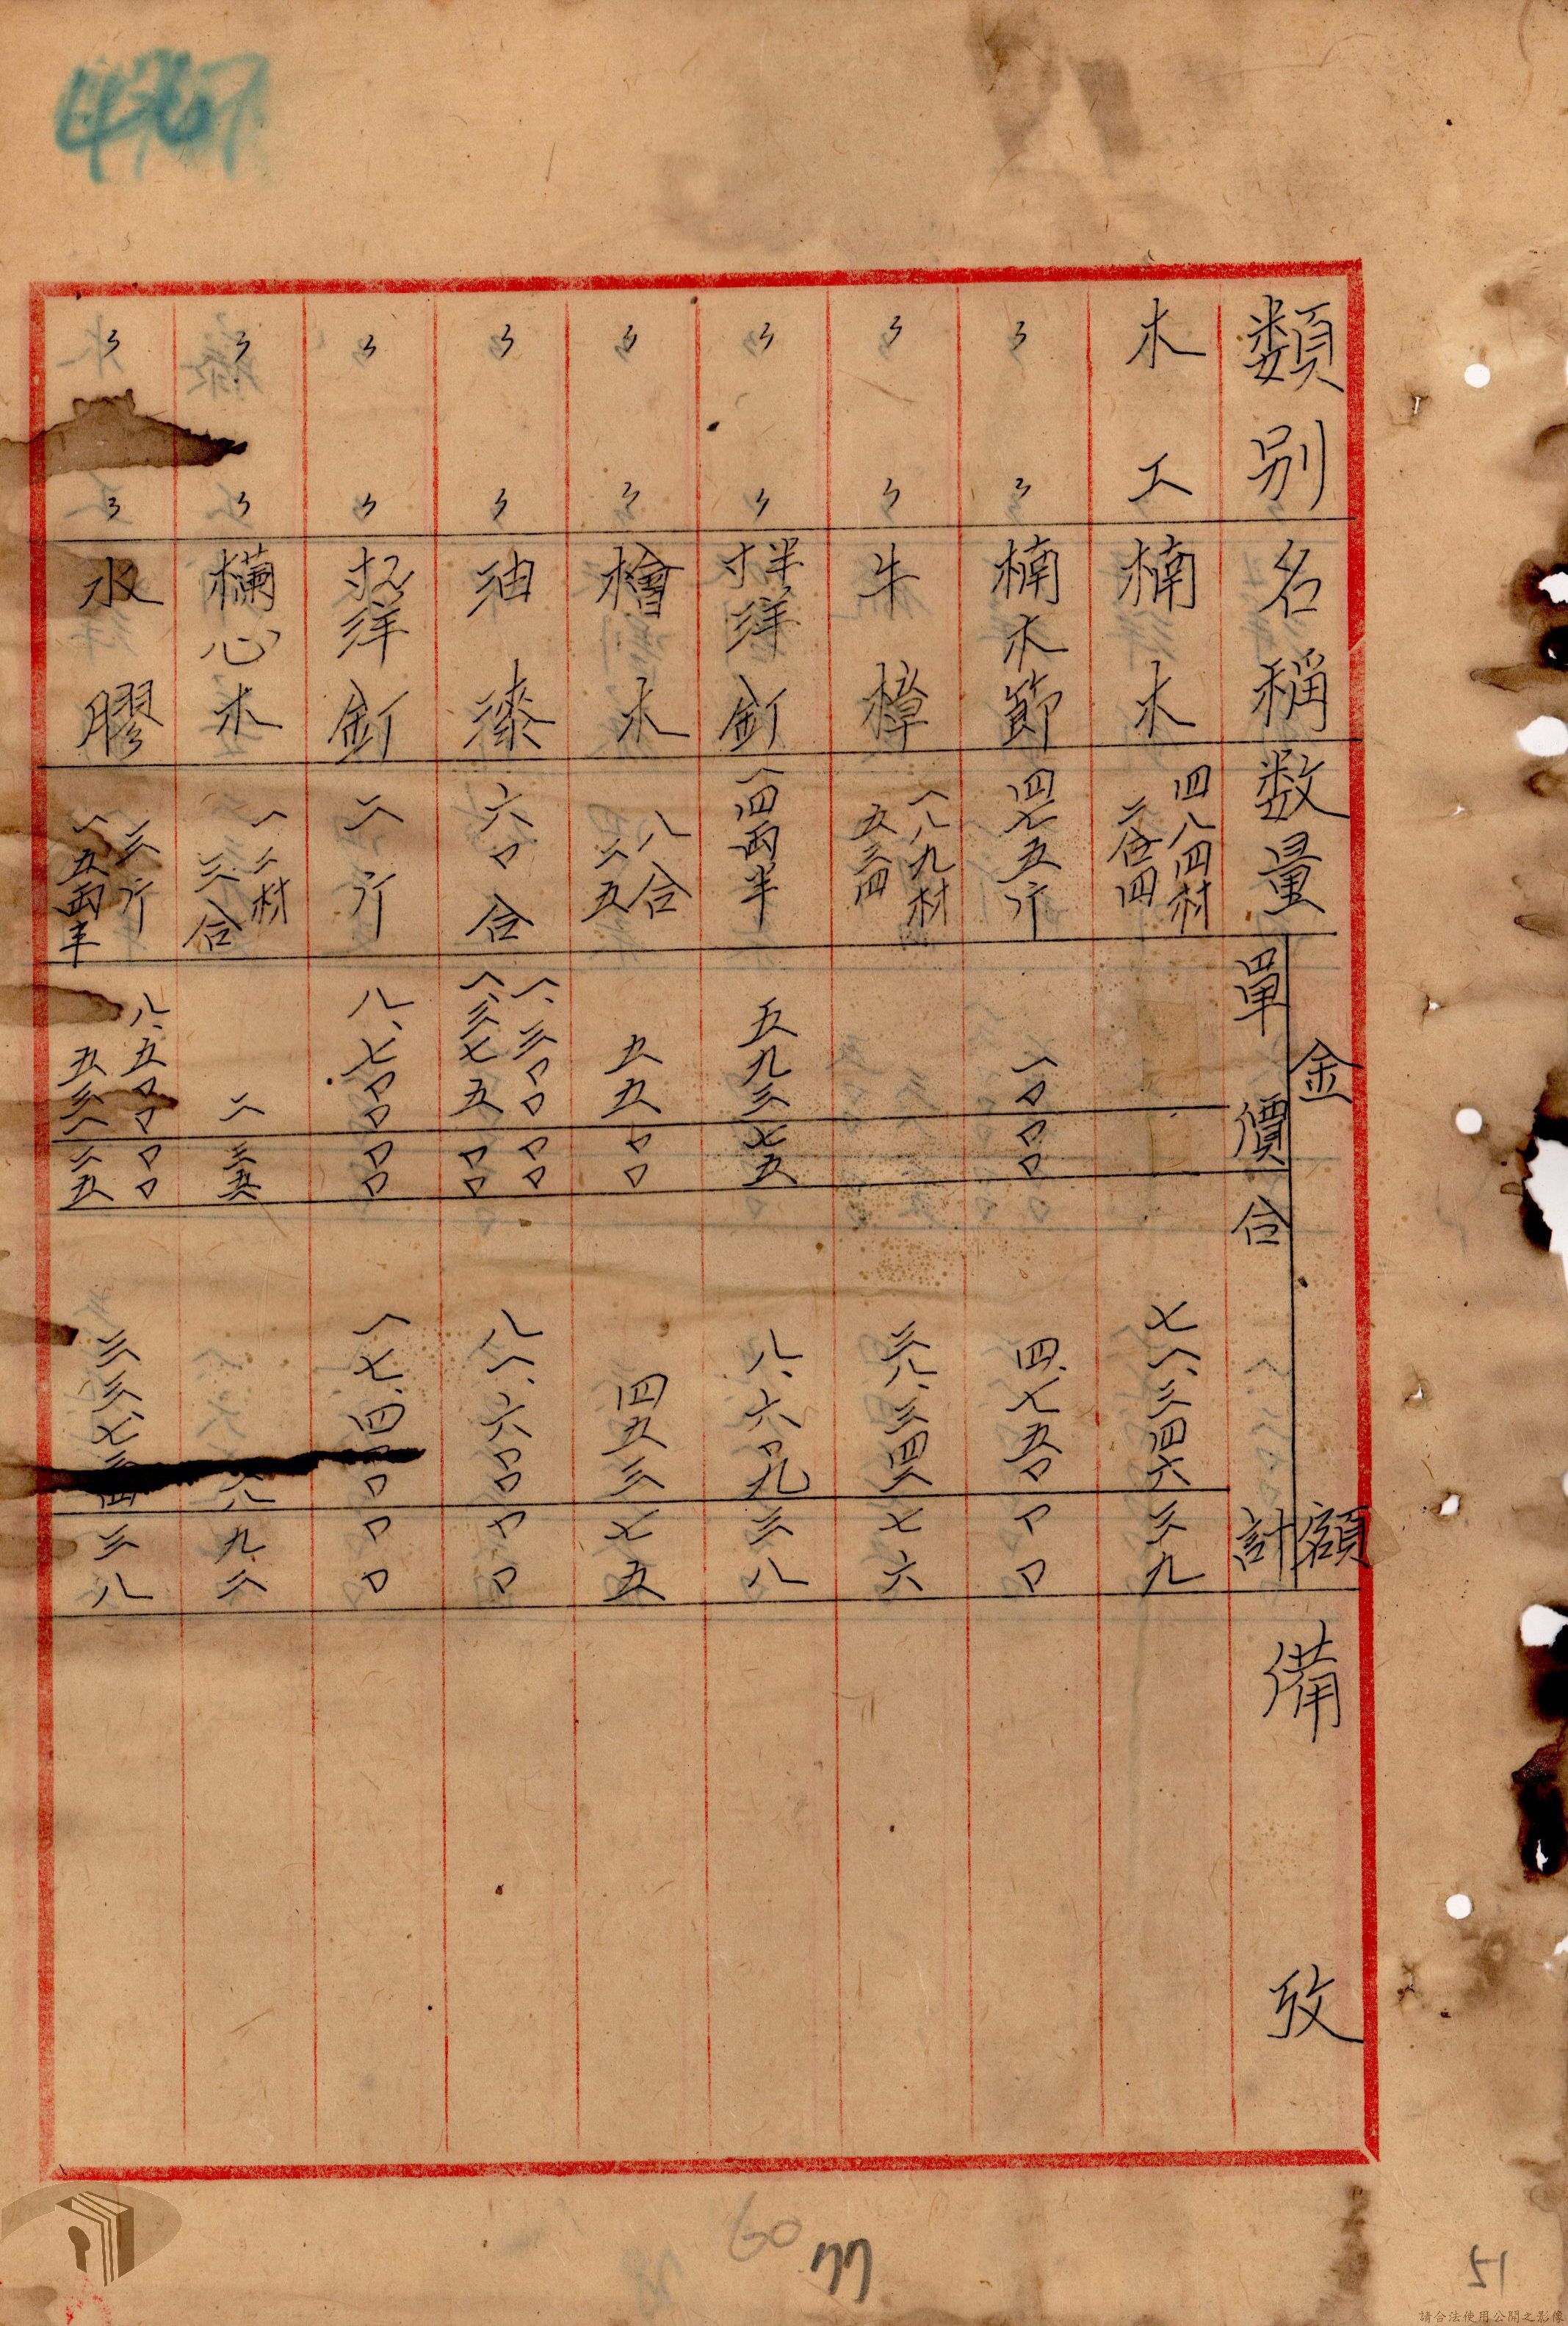 類別 名稱 数量 金額 單價 合計 備攷
木工 楠木 四八四材 七一、三四六 三九
〃 〃 楠木節 四七五斤 一〇 〇〇 四、七五〇 〇〇
〃 〃 牛樟 一八九材 五三四 七六
〃 〃 寸半洋釘 一四兩半 五九三 七五 八、六〇九 三八
〃 〃 檜木 八合 二五 五五 〇〇 四五三 七五
〃 〃 油漆 六〇合 一、三〇〇 〇〇 一、三七五 〇〇 八一、六〇〇 〇〇
〃 〃 洋釘 二斤 八、七〇〇 〇〇 一七、四〇〇 〇〇
〃 〃 心木 一二材 三合 二 八 九二
〃 〃 水膠 三斤 一五兩半 八、五〇〇 〇〇 五三一 二五 三三、七 三八
60
77
51
請合法使用公開之影像